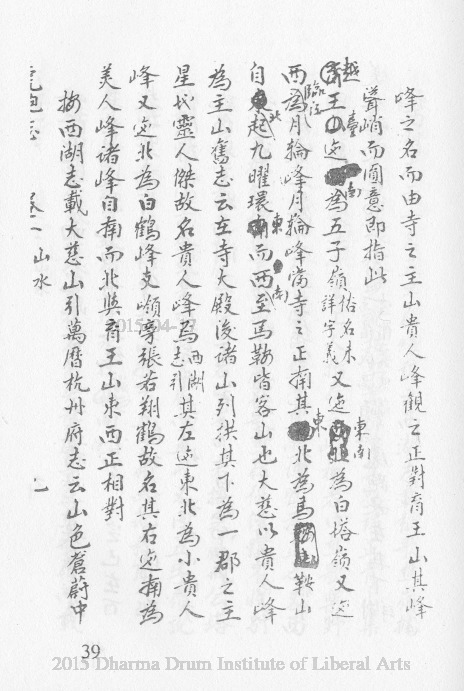 峰之名而由寺之主山貴人峰觀之正對育王山其峰
聳峭而圓意即指此
越王臺山迤南為五子嶺俗名未詳字義又迤東南為白塔嶺又迤
西臨江為月輪峰月輪峰當寺之正南其東北為馬鞍山
自北起九曜環東而西南至馬鞍皆客山也大慈以貴人峰
為主山舊志云在寺大殿後諸山列拱其下為一郡之主
星代靈人傑故名貴人峰西湖志引其左迤東北為小貴人
峰又迤北為白鶴峰支嶺旁張若翔鶴故名其右迤南為
美人峰諸峰自南而北與育王山東西正相對
按西湖志載大慈山引萬曆杭州府志云山色蒼蔚中
虎跑志 卷一 山水 一
2015-04-
39
2015 Dharma Drum Institute of Liberal Arts